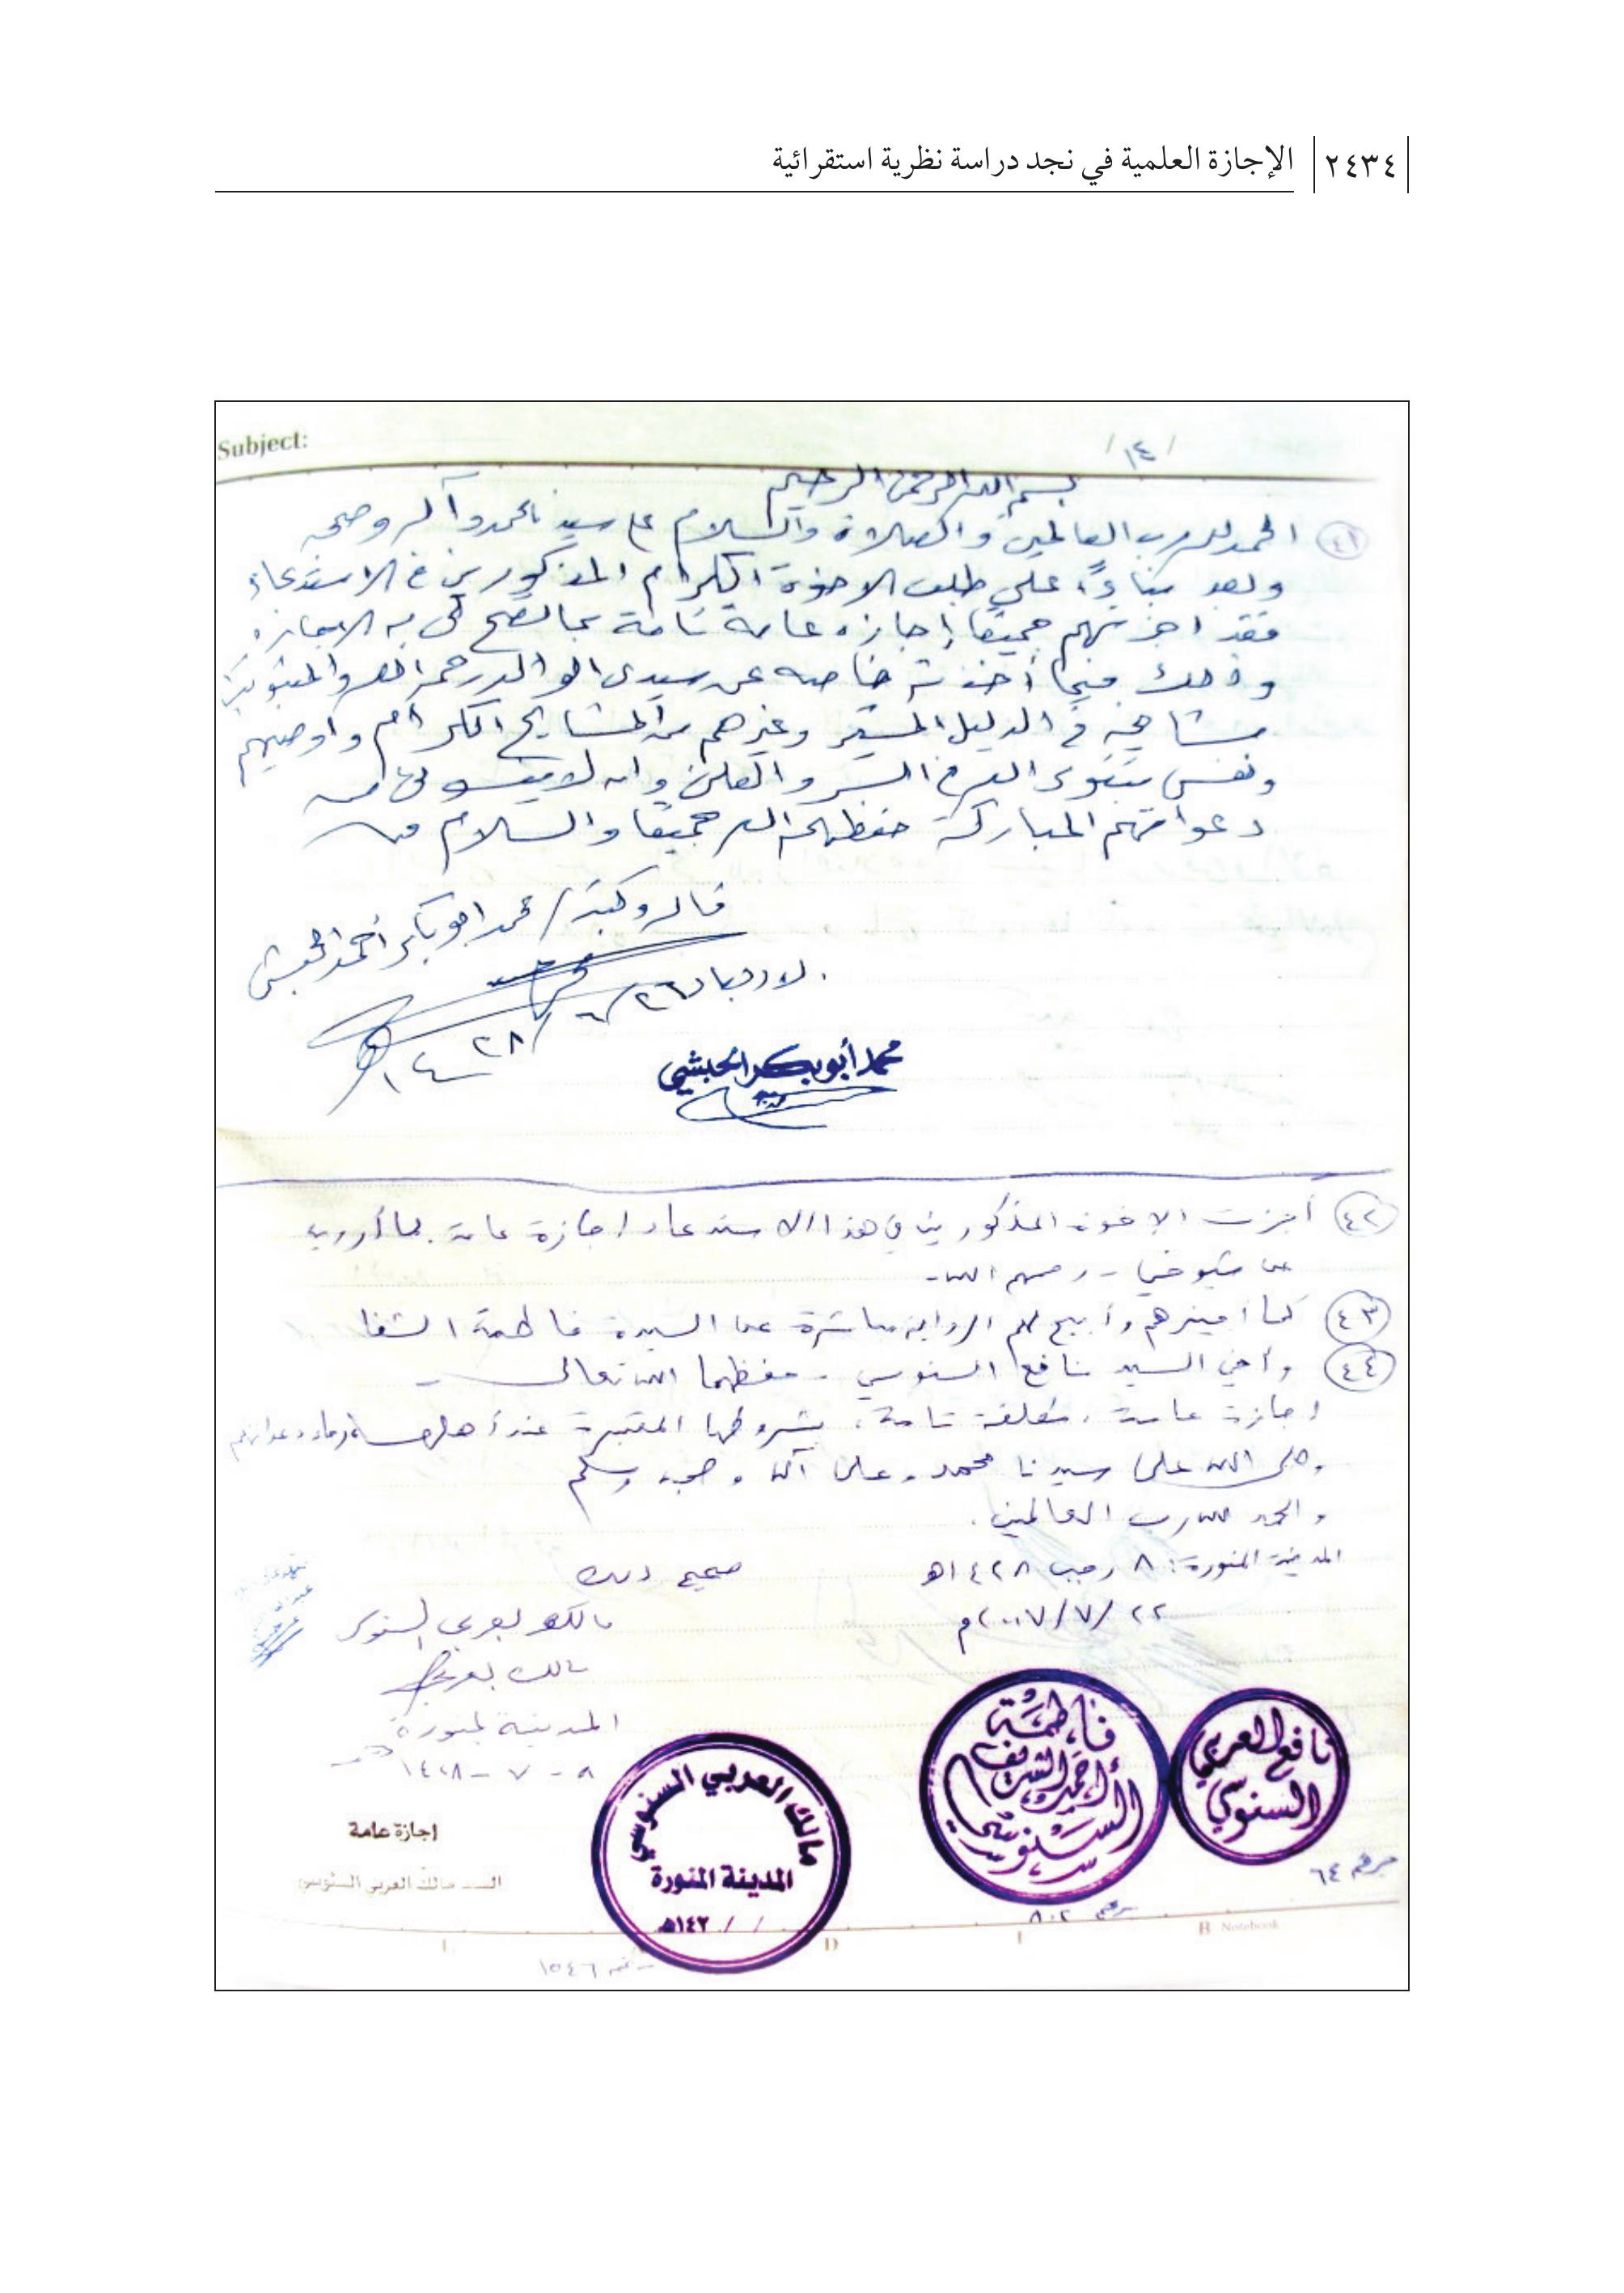 ٢٤٣٤ الإجازة العلمية في نجد دراسة نظرية استقرائية
Subject:
/ ١٤ /
بسم الله الرحمن الرحيم
٤١ الحمد لله رب العالمين والصلاة والسلام على سيدنا محمد وآله وصحبه
وبعد بناءً على طلب الاخوة الكرام المذكورين في الاستدعاء
فقد اجزتهم جميعًا إجازه عامة تامة بما تصح لي به الاجازه
وذلك فيما أخذته خاصه عن سيدى الوالد رحمه الله والمثبوتين
مشايخه في الدليل المشير وغيرهم من المشايخ الكرام واوصيهم
ونفسي بتقوى الله في السر والعلن وان لا ينسوني من
دعواتهم المباركة حفظهم الله جميعًا والسلام
قاله وكتبه / محمد ابو بكر أحمد الحبشي
الاربعاء ٢٦/٦/١٤٢٨
محمد أبوبكر الحبشي
٤٢ أجزت الاخوة المذكورين في هذا الاستدعاء اجازة عامة بما أرويه
عن شيوخي - رحمهم الله -
٤٣ كما أجيزهم وأبيح لهم الرواية مباشرة عن السيدة فاطمة الشفا
٤٤ وأخي السيد نافع السنوسي - حفظهما الله تعالى -
اجازة عامة، مطلقة تامة، بشروطها المعتبرة عند أهلها
وصلى الله على سيدنا محمد وعلى آله وصحبه وسلم
والحمد لله رب العالمين.
المدينة المنورة: ٨ رجب ١٤٢٨هـ
٢٢/٧/٢٠٠٧م
صحيح ذلك
مالك العربي السنوسي
مالك العربي
المدينة المنورة
٨ - ٧ - ١٤٢٨
نافع العربي
السنوسي
فاطمة
أحمد الشريف
السنوسي
مالك العربي السنوسي
المدينة المنورة
/ / ١٤٢هـ
اجازة عامة
السيد مالك العربي السنوسي
جرهم ٦٤
٨٠٢
١٥٤٦
B Notebook
L D I